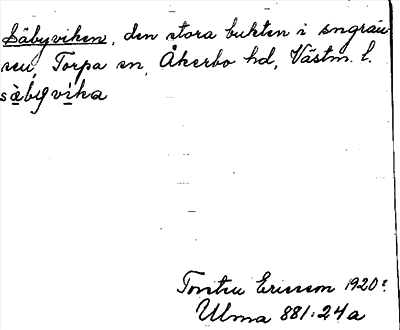 Säbyviken, den stora bukten i sngrän
sen, Torpa sn, Åkerbo hd, Västm. l.
sàbyvika
Torsten Ericsson 1920?
Ulma 881:24a